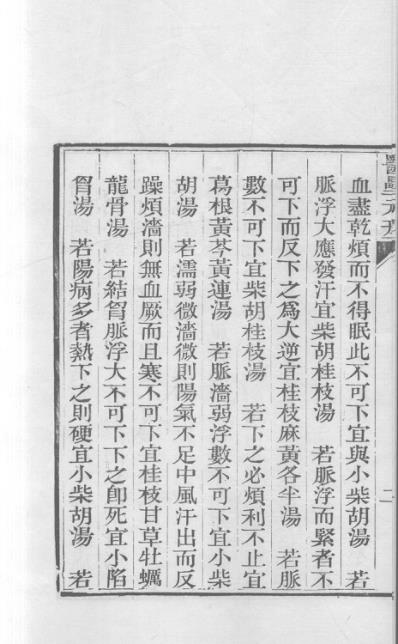 血盡乾煩而不得眠此不可下宜與小柴胡湯　若
脈浮大應發汗宜柴胡桂枝湯　若脈浮而緊者不
可下而反下之爲大逆宜桂枝麻黃各半湯　若脈
數不可下宜柴胡桂枝湯　若下之必煩利不止宜
葛根黃芩黃連湯　若脈濇弱浮數不可下宜小柴
胡湯　若濡弱微濇微則陽氣不足中風汗出而反
躁煩濇則無血厥而且寒不可下宜桂枝甘草牡蠣
龍骨湯　若結胷脈浮大不可下下之卽死宜小陷
胷湯　若陽病多者熱下之則硬宜小柴胡湯　若